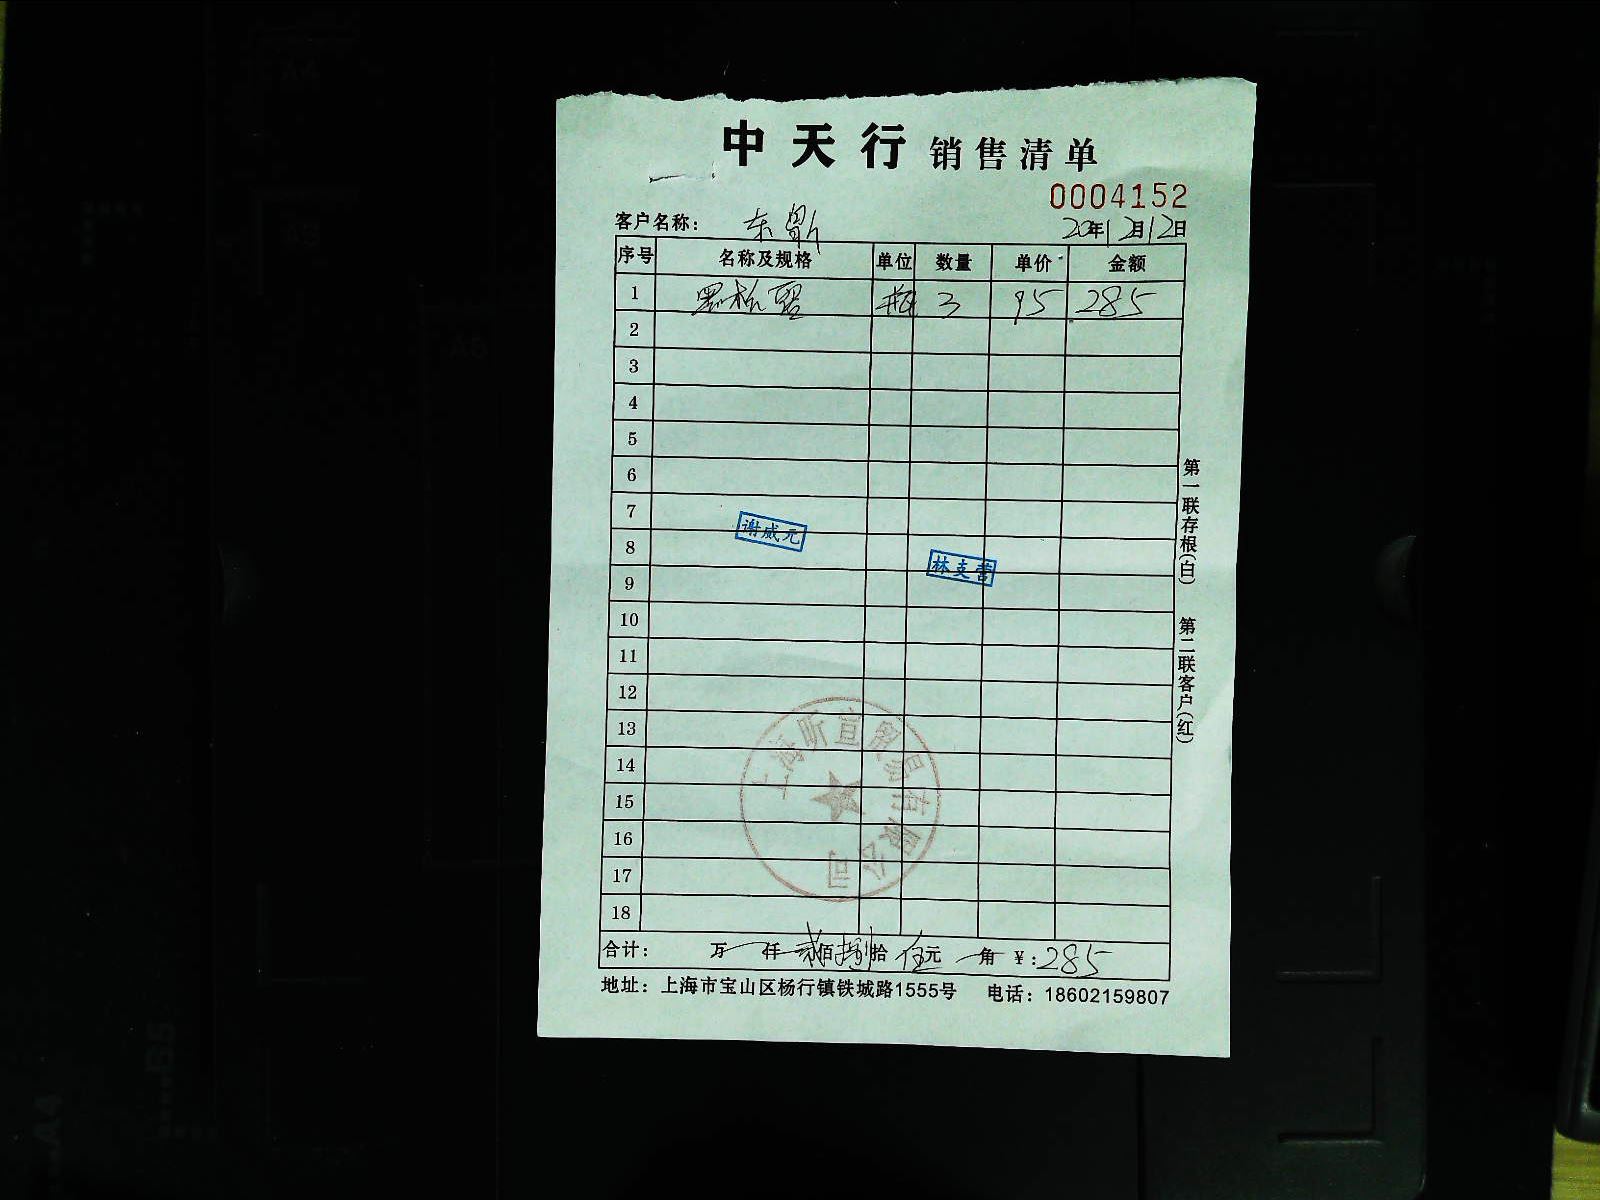 中天行 销售清单
0004152
客户名称： 东
20年12月12日
序号 名称及规格 单位 数量 单价 金额
1 黑松露 瓶 3 95 285
2
3
4
5
6
7
谢威元
8
林支营
9
10
11
12
13
14
15
16
17
18
上海昕宣贸易有限公司
合计： 万 仟 贰佰捌拾伍元 角 ¥：285
地址：上海市宝山区杨行镇铁城路1555号 电话：18602159807
第一联存根(白) 第二联客户(红)